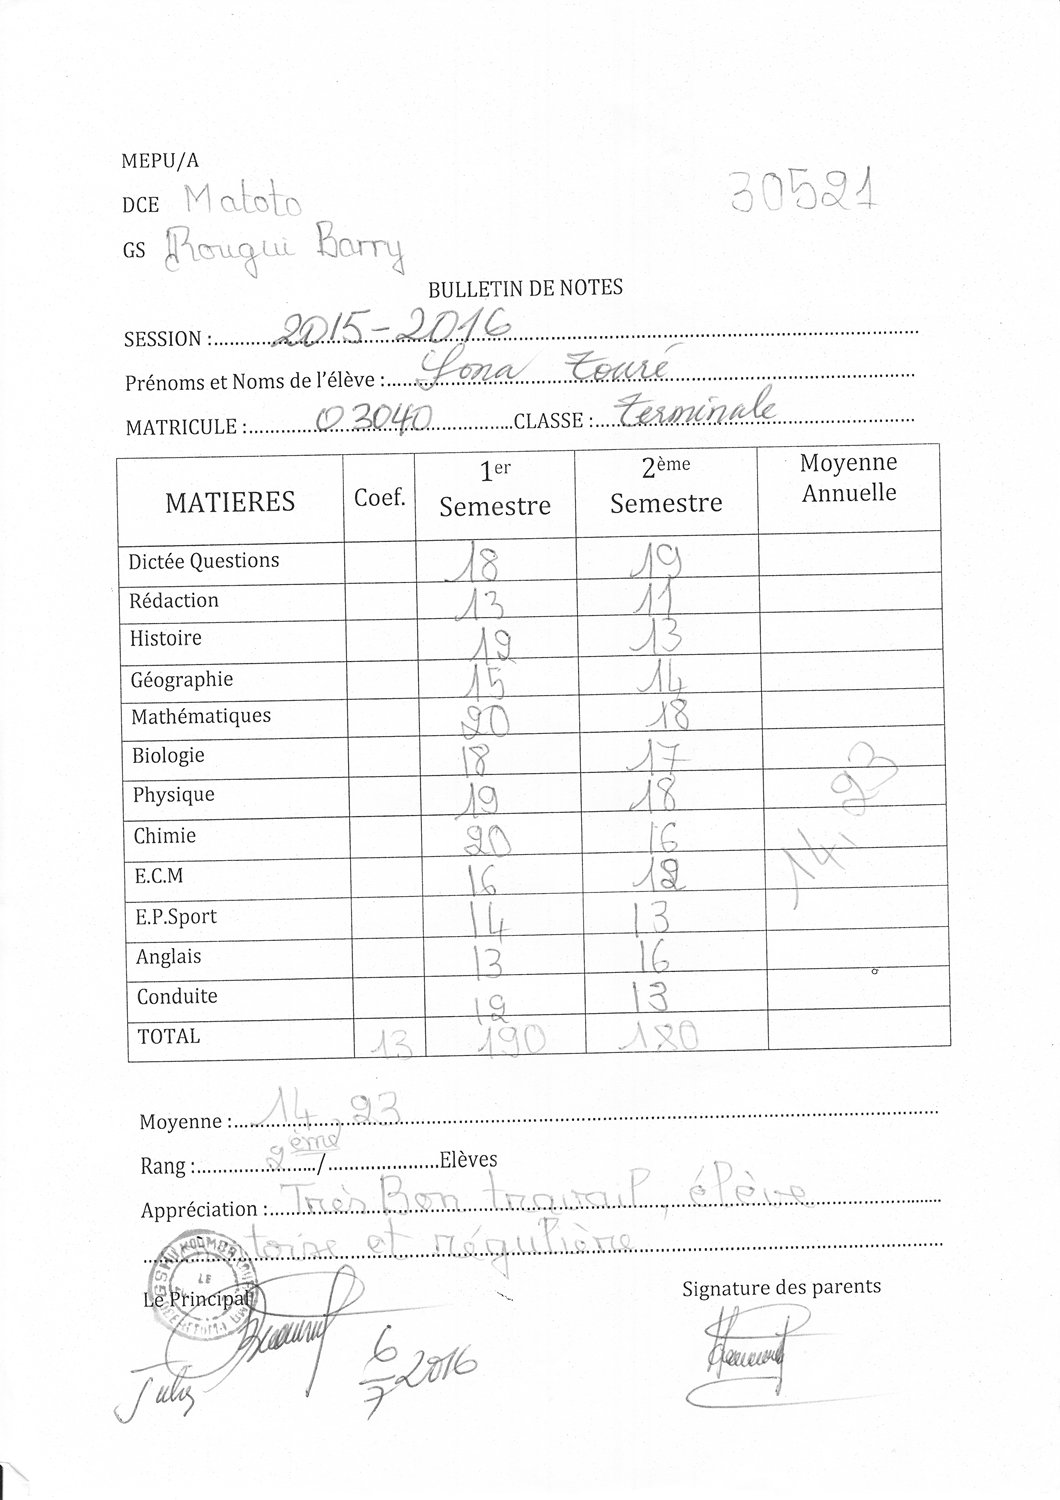 MEPU/A
DCE Matoto
30521
GS Rougui Barry
BULLETIN DE NOTES
SESSION : 2015-2016
Prénoms et Noms de l'élève : Sona Touré
MATRICULE : 03040 CLASSE : Terminale
MATIERES Coef. 1er Semestre 2ème Semestre Moyenne Annuelle
Dictée Questions 18 19
Rédaction 13 11
Histoire 12 13
Géographie 15 14
Mathématiques 20 18
Biologie 18 17
Physique 19 18
Chimie 20 16
E.C.M 16 12
E.P.Sport 14 13
Anglais 13 16
Conduite 12 13
TOTAL 13 190 180
14,23
Moyenne : 14,23
Rang : 2ème / Elèves
Appréciation : Très Bon travail, élève
et régulière
LE
Le Principal
Signature des parents
6/7 2016